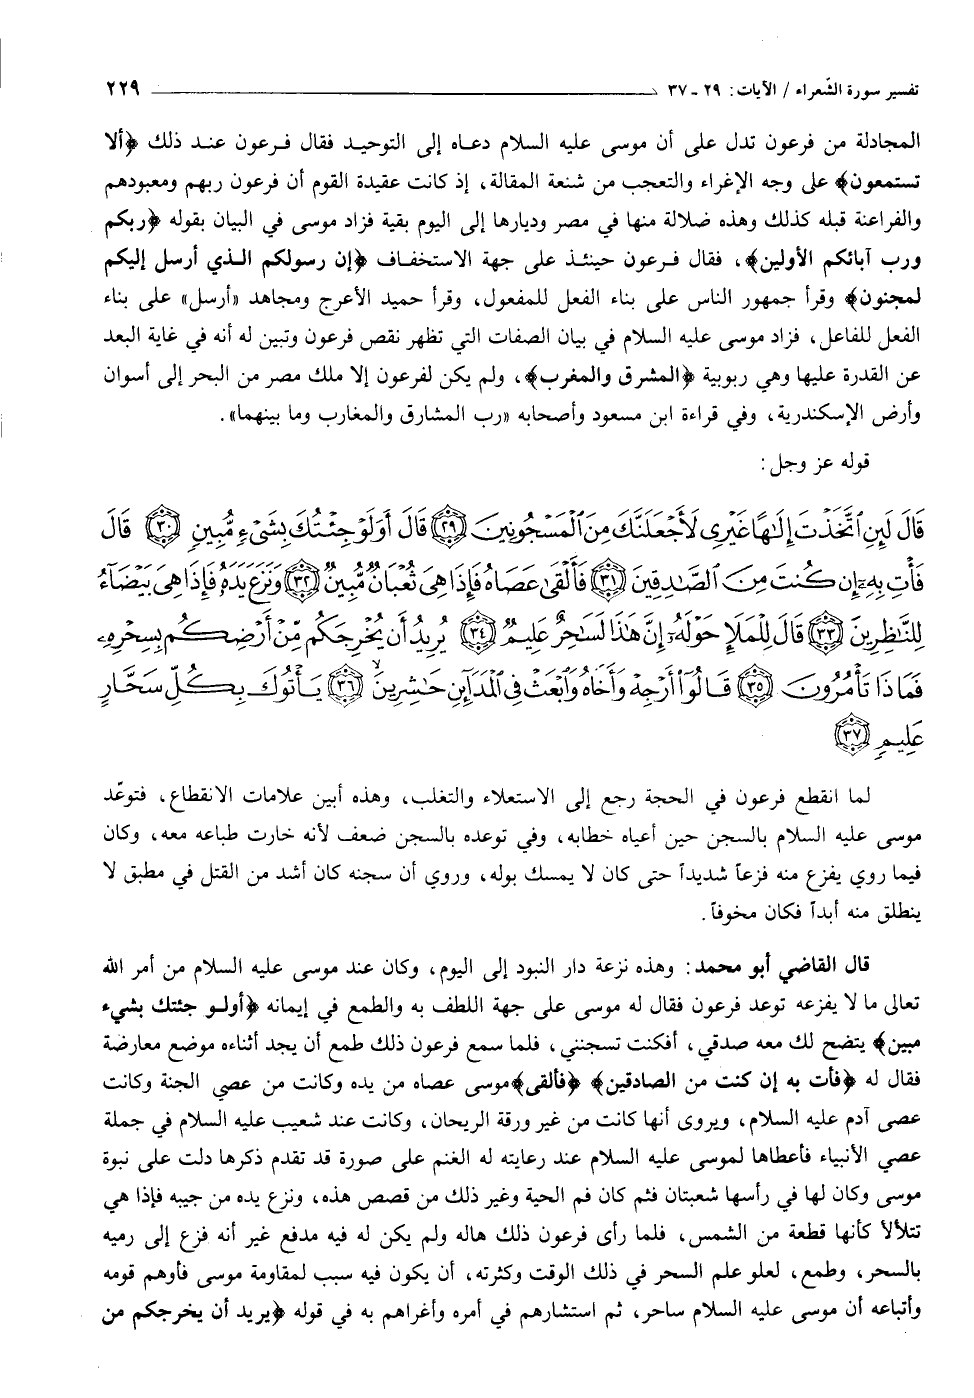 تفسير سورة الشّعراء / الآيات: ٢٩ - ٣٧ ٢٢٩
المجادلة من فرعون تدل على أن موسى عليه السلام دعاه إلى التوحيد فقال فرعون عند ذلك ﴿ألا
تستمعون﴾ على وجه الإغراء والتعجب من شنعة المقالة، إذ كانت عقيدة القوم أن فرعون ربهم ومعبودهم
والفراعنة قبله كذلك وهذه ضلالة منها في مصر وديارها إلى اليوم بقية فزاد موسى في البيان بقوله ﴿ربكم
ورب آبائكم الأولين﴾، فقال فرعون حينئذ على جهة الاستخفاف ﴿إن رسولكم الذي أرسل إليكم
لمجنون﴾ وقرأ جمهور الناس على بناء الفعل للمفعول، وقرأ حميد الأعرج ومجاهد «أرسل» على بناء
الفعل للفاعل، فزاد موسى عليه السلام في بيان الصفات التي تظهر نقص فرعون وتبين له أنه في غاية البعد
عن القدرة عليها وهي ربوبية ﴿المشرق والمغرب﴾، ولم يكن لفرعون إلا ملك مصر من البحر إلى أسوان
وأرض الإسكندرية، وفي قراءة ابن مسعود وأصحابه «رب المشارق والمغارب وما بينهما».
قوله عز وجل:
قَالَ لَئِنِ ٱتَّخَذْتَ إِلَٰهًا غَيْرِى لَأَجْعَلَنَّكَ مِنَ ٱلْمَسْجُونِينَ ﴿٢٩﴾ قَالَ أَوَلَوْ جِئْتُكَ بِشَىْءٍ مُّبِينٍ ﴿٣٠﴾ قَالَ
فَأْتِ بِهِۦٓ إِن كُنتَ مِنَ ٱلصَّٰدِقِينَ ﴿٣١﴾ فَأَلْقَىٰ عَصَاهُ فَإِذَا هِىَ ثُعْبَانٌ مُّبِينٌ ﴿٣٢﴾ وَنَزَعَ يَدَهُۥ فَإِذَا هِىَ بَيْضَآءُ
لِلنَّٰظِرِينَ ﴿٣٣﴾ قَالَ لِلْمَلَإِ حَوْلَهُۥٓ إِنَّ هَٰذَا لَسَٰحِرٌ عَلِيمٌ ﴿٣٤﴾ يُرِيدُ أَن يُخْرِجَكُم مِّنْ أَرْضِكُم بِسِحْرِهِۦ
فَمَاذَا تَأْمُرُونَ ﴿٣٥﴾ قَالُوٓا۟ أَرْجِهْ وَأَخَاهُ وَٱبْعَثْ فِى ٱلْمَدَآئِنِ حَٰشِرِينَ ﴿٣٦﴾ يَأْتُوكَ بِكُلِّ سَحَّارٍ
عَلِيمٍ ﴿٣٧﴾
لما انقطع فرعون في الحجة رجع إلى الاستعلاء والتغلب، وهذه أبين علامات الانقطاع، فتوعّد
موسى عليه السلام بالسجن حين أعياه خطابه، وفي توعده بالسجن ضعف لأنه خارت طباعه معه، وكان
فيما روي يفزع منه فزعاً شديداً حتى كان لا يمسك بوله، وروي أن سجنه كان أشد من القتل في مطبق لا
ينطلق منه أبداً فكان مخوفاً.
قال القاضي أبو محمد: وهذه نزعة دار النبود إلى اليوم، وكان عند موسى عليه السلام من أمر الله
تعالى ما لا يفزعه توعد فرعون فقال له موسى على جهة اللطف به والطمع في إيمانه ﴿أولو جئتك بشيء
مبين﴾ يتضح لك معه صدقي، أفكنت تسجنني، فلما سمع فرعون ذلك طمع أن يجد أثناءه موضع معارضة
فقال له ﴿فأت به إن كنت من الصادقين﴾ ﴿فألقى﴾ موسى عصاه من يده وكانت من عصي الجنة وكانت
عصى آدم عليه السلام، ويروى أنها كانت من غير ورقة الريحان، وكانت عند شعيب عليه السلام في جملة
عصي الأنبياء فأعطاها لموسى عليه السلام عند رعايته له الغنم على صورة قد تقدم ذكرها دلت على نبوة
موسى وكان لها في رأسها شعبتان فثم كان فم الحية وغير ذلك من قصص هذه، ونزع يده من جيبه فإذا هي
تتلألأ كأنها قطعة من الشمس، فلما رأى فرعون ذلك هاله ولم يكن له فيه مدفع غير أنه فزع إلى رميه
بالسحر، وطمع، لعلو علم السحر في ذلك الوقت وكثرته، أن يكون فيه سبب لمقاومة موسى فأوهم قومه
وأتباعه أن موسى عليه السلام ساحر، ثم استشارهم في أمره وأغراهم به في قوله ﴿يريد أن يخرجكم من